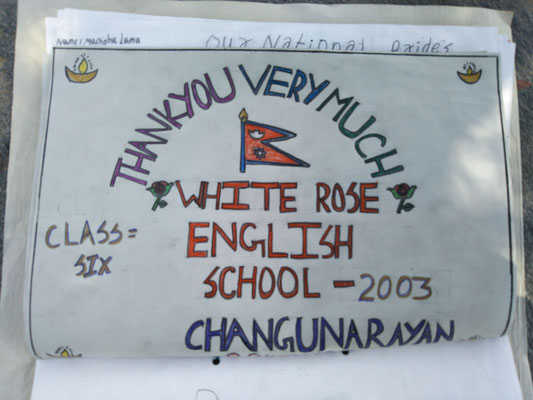 Name: Manisha Lama
Our National Prides
THANKYOU VERY MUCH
WHITE ROSE
CLASS=
SIX
ENGLISH
SCHOOL - 2003
CHANGUNARAYAN